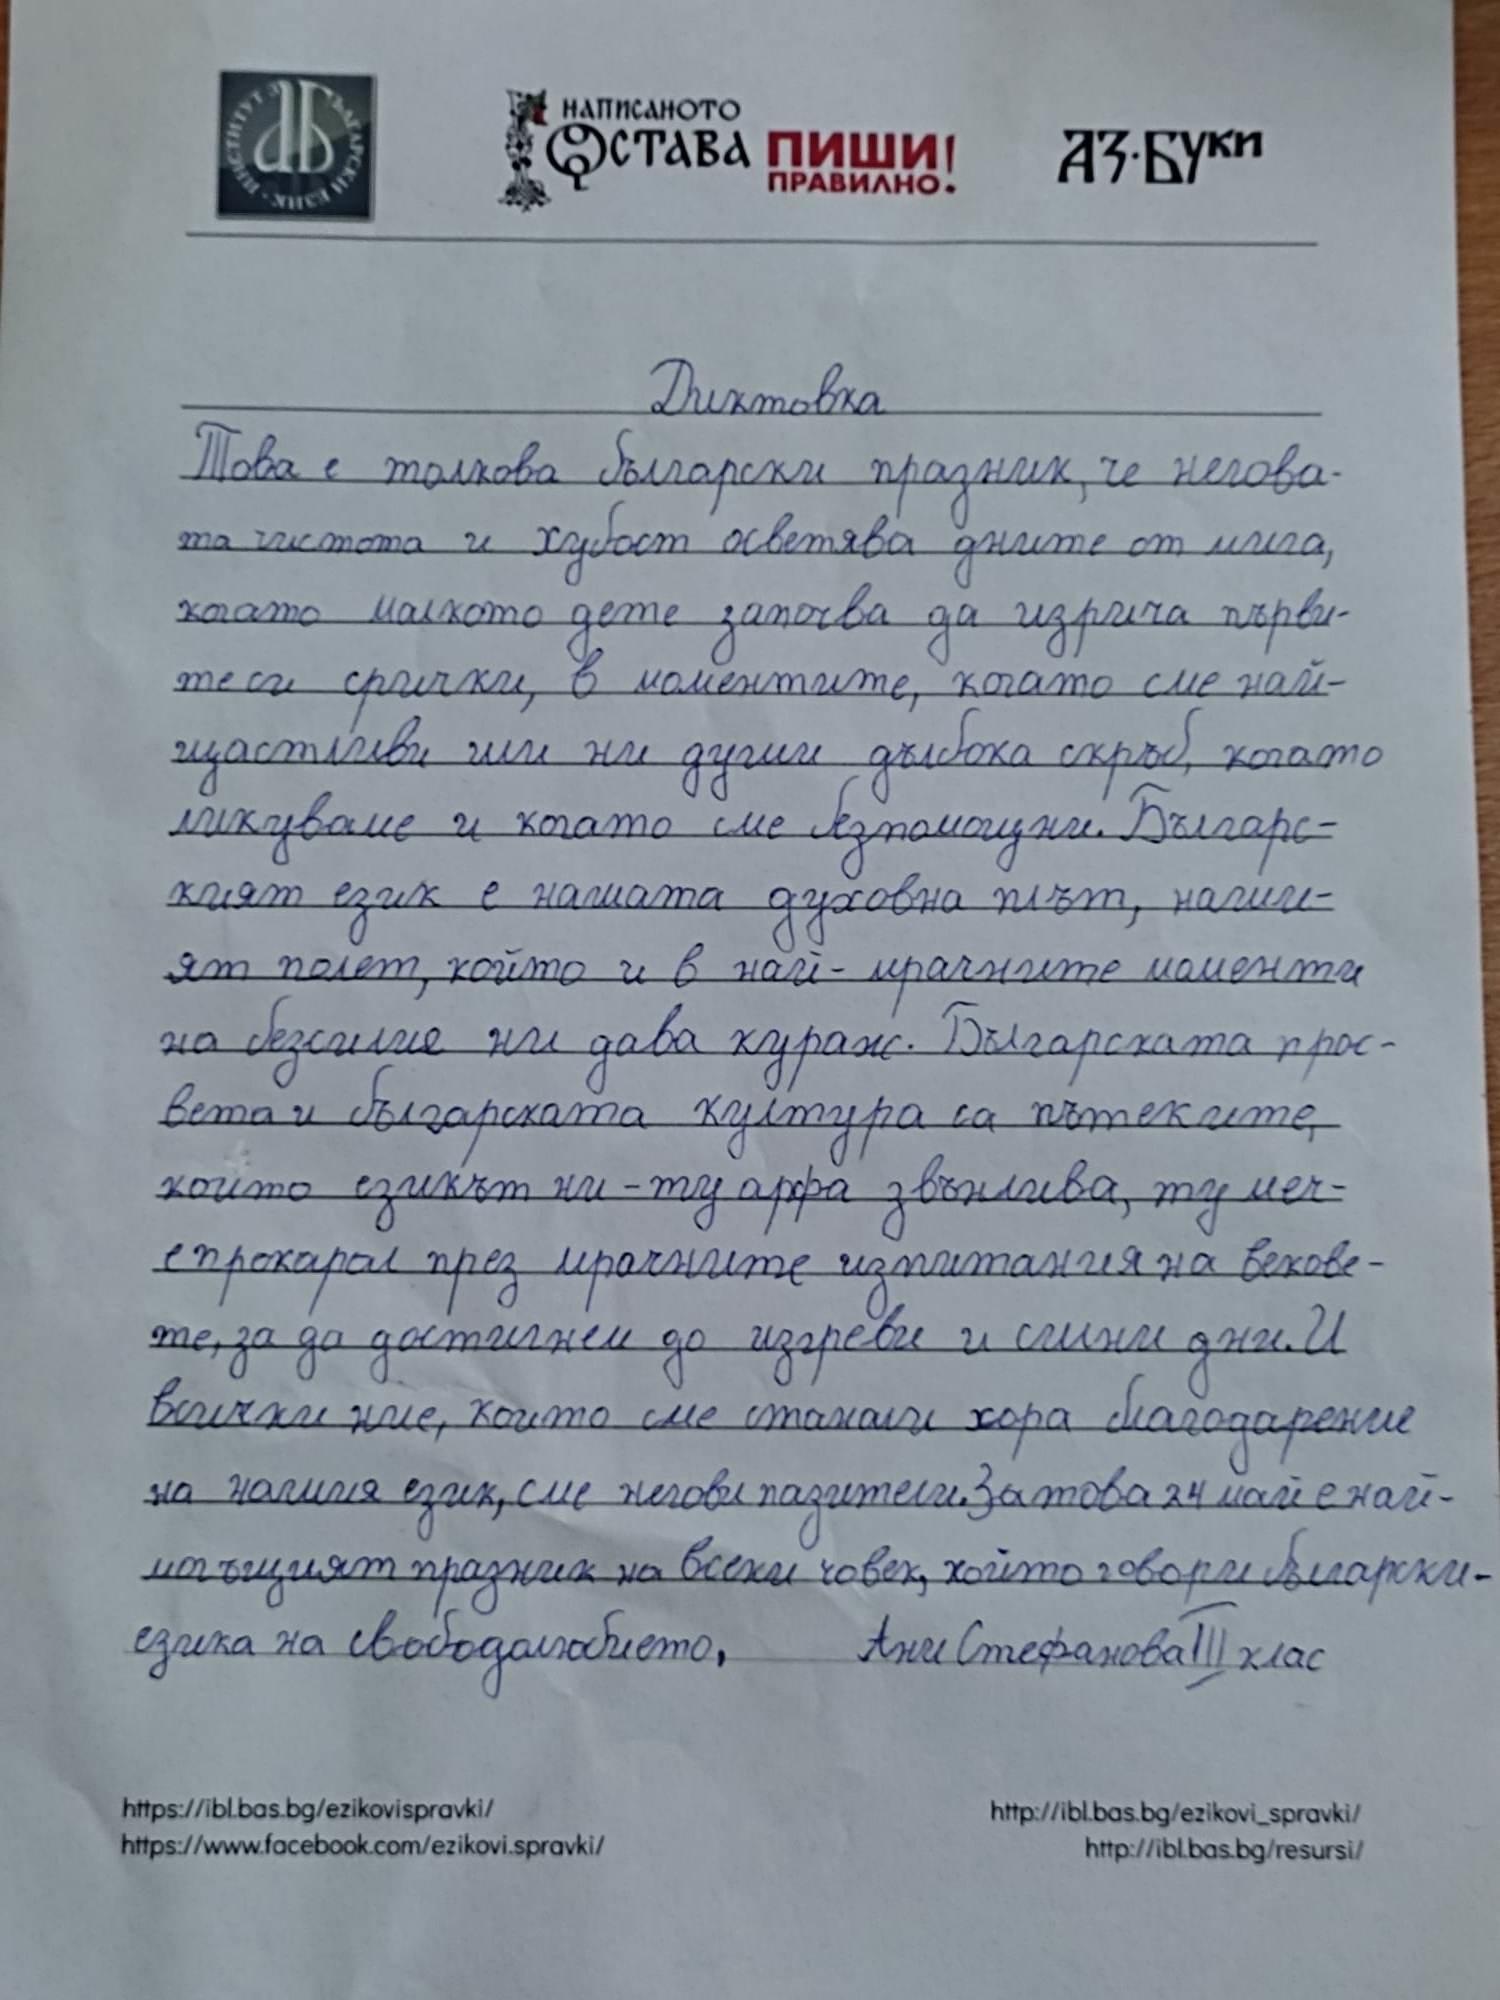 ИНСТИТУТ ЗА БЪЛГАРСКИ ЕЗИК
НАПИСАНОТО
ОСТАВА ПИШИ!
ПРАВИЛНО.
АЗ·БУКИ
Диктовка
Това е толкова български празник, че негова-
та чистота и хубост осветява дните от мига,
когато малкото дете започва да изрича първи-
те си срички, в моментите, когато сме най-
щастливи или ни души дълбока скръб, когато
ликуваме и когато сме безпомощни. Българс-
кият език е нашата духовна плът, наши-
ят полет, който и в най-мрачните моменти
на безсилие ни дава кураж. Българската прос-
вета и българската култура са пътеките,
които езикът ни - ту арфа звънлива, ту меч-
е прокарал през мрачните изпитания на векове-
те, за да достигнем до изгреви и сини дни. И
всички ние, които сме станали хора благодарение
на нашия език, сме негови пазители. Затова 24 май е най-
могъщият празник на всеки човек, който говори български-
езика на свободолюбието. Ани Стефанова III клас
https://ibl.bas.bg/ezikovispravki/
http://ibl.bas.bg/ezikovi_spravki/
https://www.facebook.com/ezikovi.spravki/
http://ibl.bas.bg/resursi/